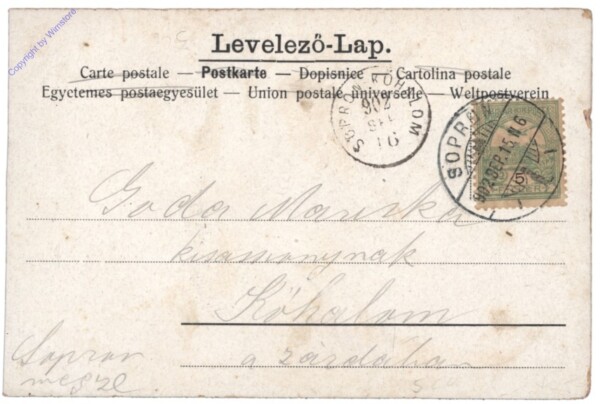 Copyright by Wimstore
Levelező-Lap.
Carte postale — Postkarte — Dopisnice — Cartolina postale
Egyetemes postaegyesület — Union postale universelle — Weltpostverein
SOPRON KŐHALOM
902
SEP
16
SOPRON
902 SEP. 15. N6
Goda Mariska
kisasszonynak
Kőhalom
a zárdában
Sopron
megye